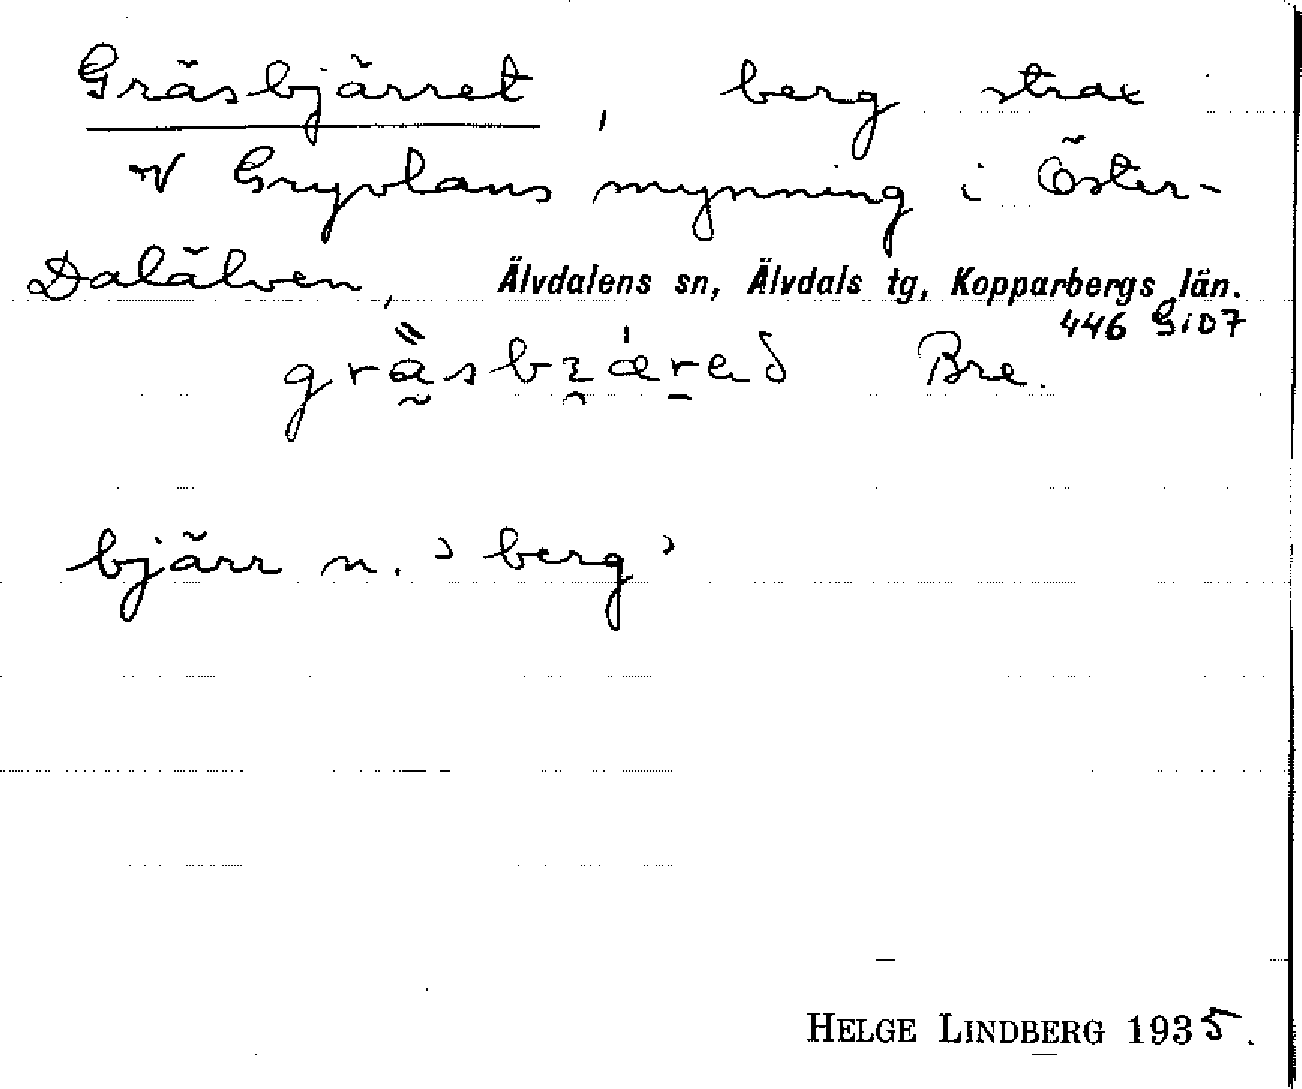 Gräsbjärret, berg strax
V Gryvlans mynning i Öster-
Dalälven, Älvdalens sn, Älvdals tg, Kopparbergs län.
446 GiD7
Bre.
bjärr n. ’berg’
HELGE LINDBERG 1935.